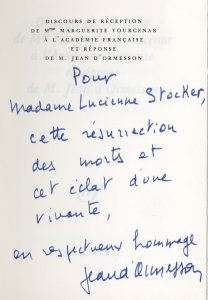 DISCOURS DE RÉCEPTION
DE Mme MARGUERITE YOURCENAR
À L'ACADÉMIE FRANÇAISE
ET RÉPONSE
DE M. JEAN D'ORMESSON
Pour
Madame Lucienne Stocker,
cette résurrection
des morts et
cet éclat d'une
vivante,
en respectueux hommage
Jean d'Ormesson